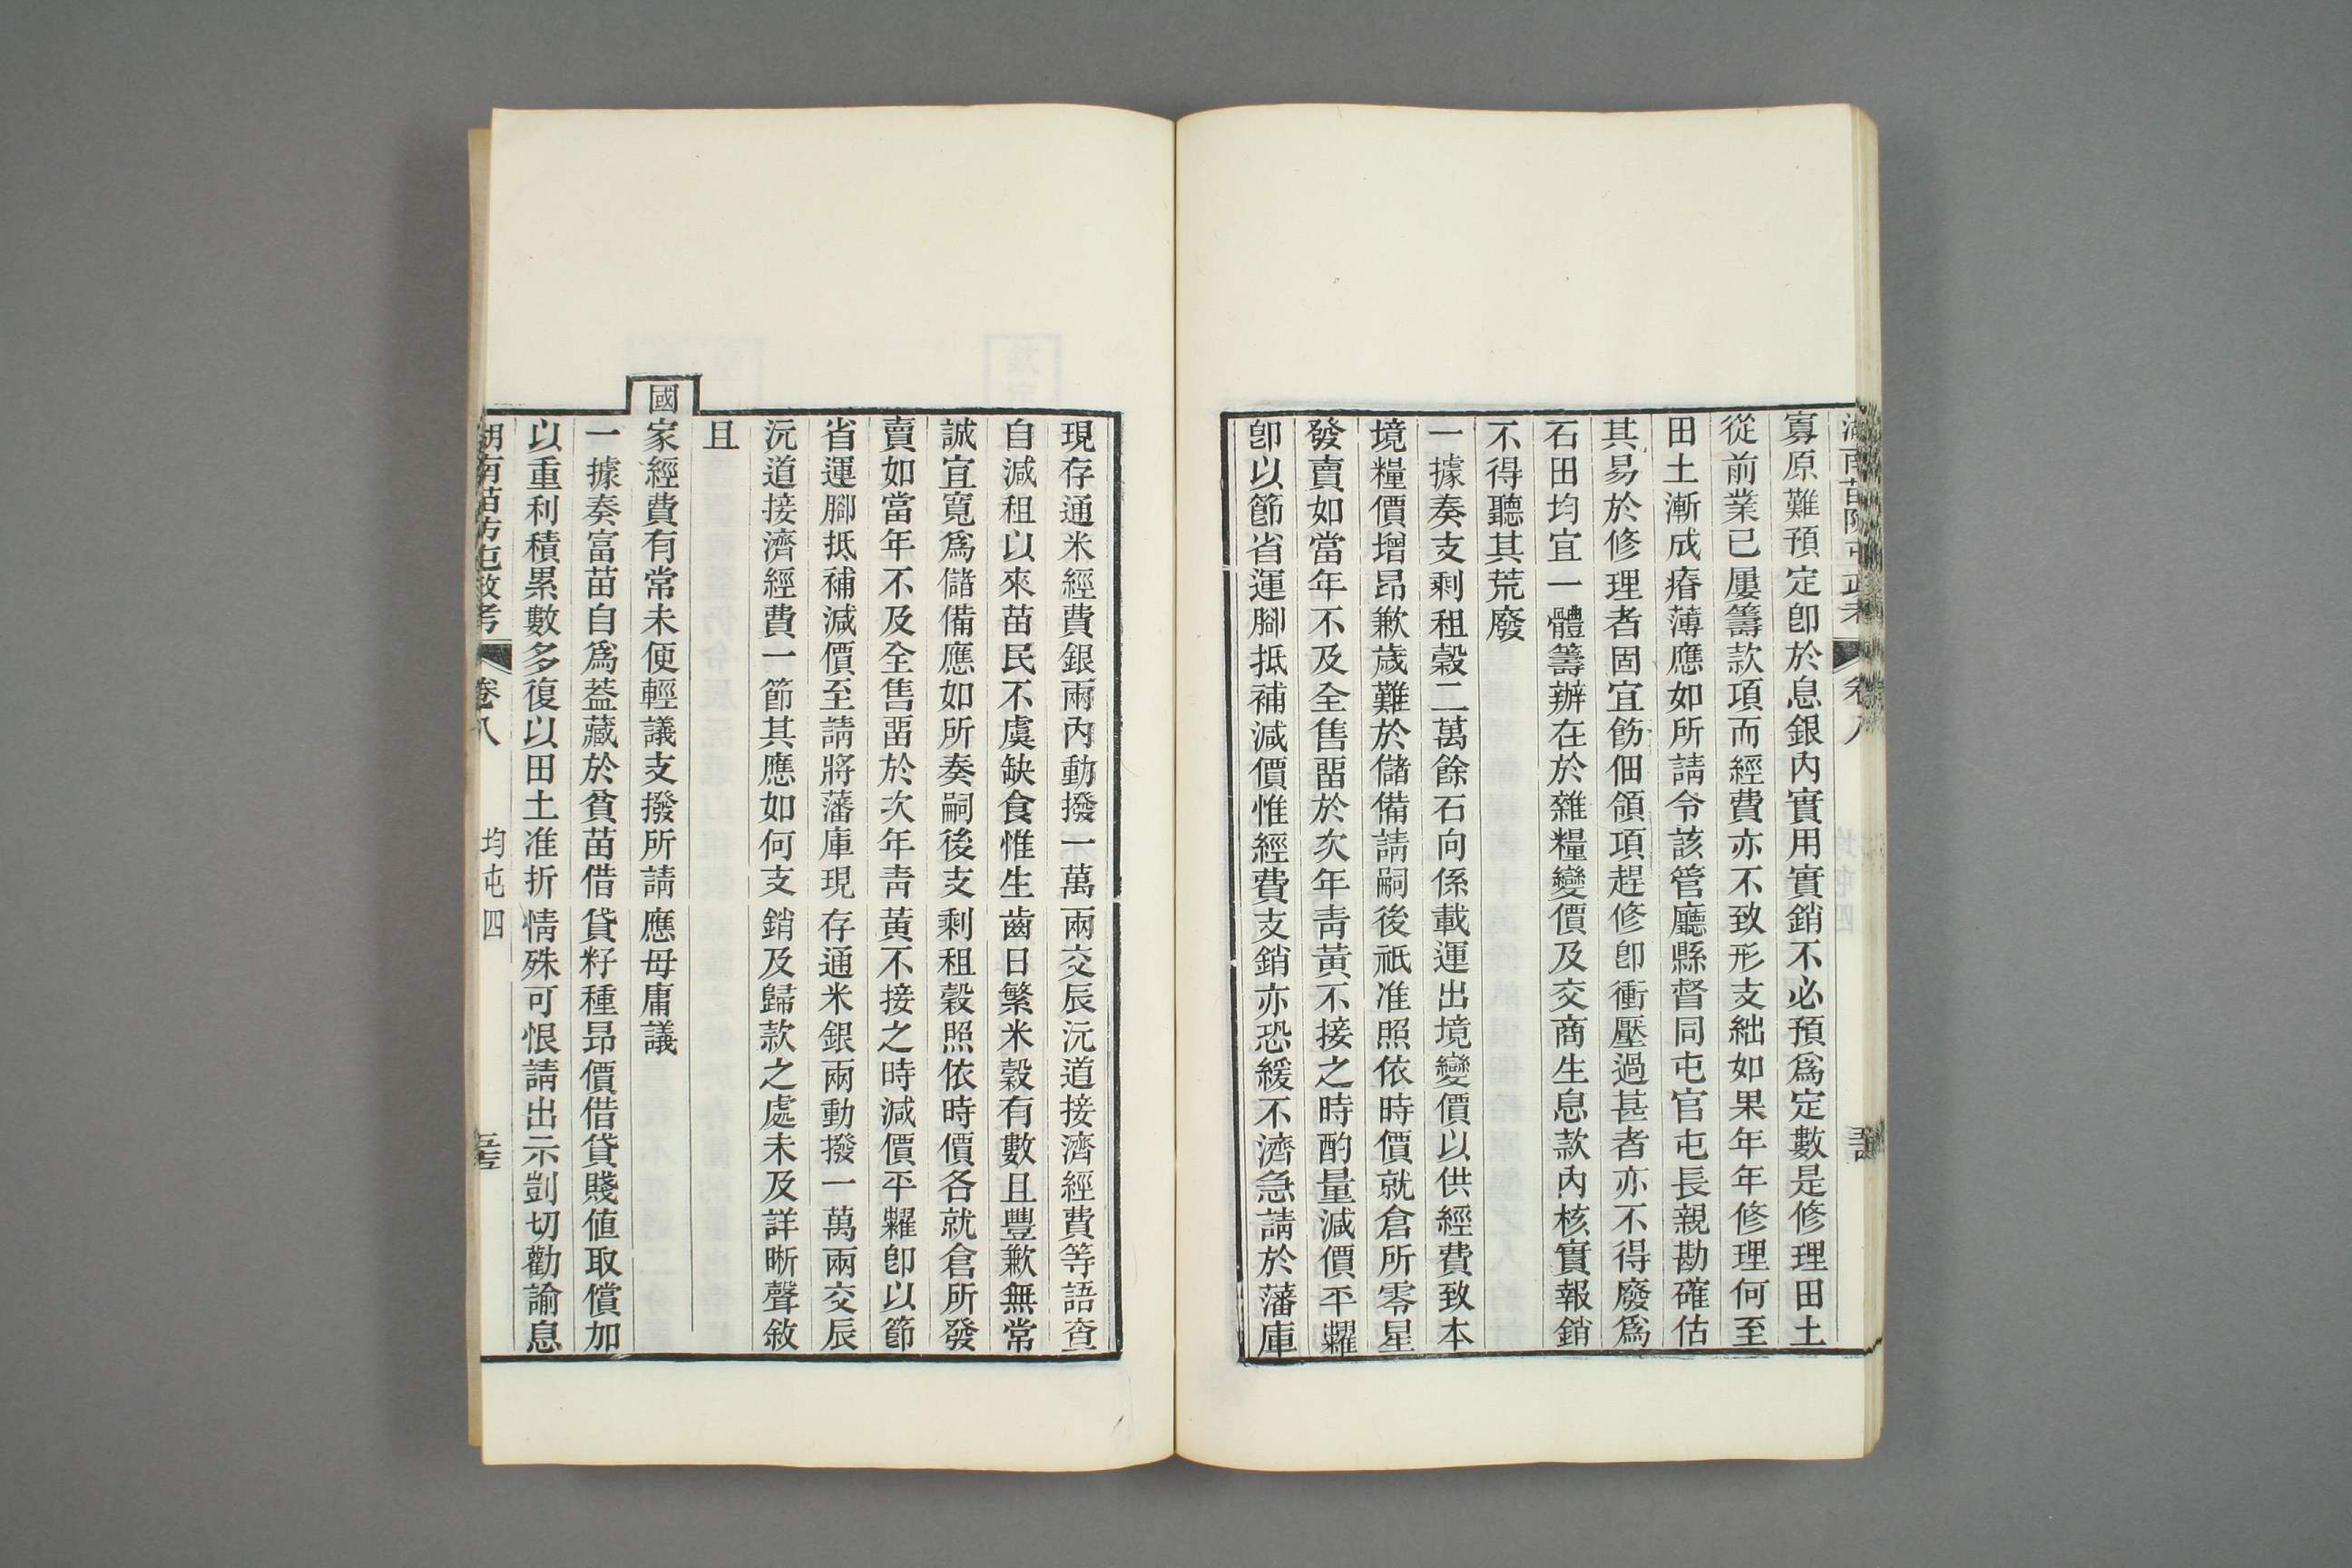 寡原難預定卽於息銀內實用實銷不必預爲定數是修理田土
從前業已屢籌款項而經費亦不致形支絀如果年年修理何至
田土漸成瘠薄應如所請令該管廳縣督同屯官屯長親勘確估
其易於修理者固宜飭佃領項趕修卽衝壓過甚者亦不得廢爲
石田均宜一體籌辦在於雜糧變價及交商生息款內核實報銷
不得聽其荒廢
一據奏支剩租穀二萬餘石向係載運出境變價以供經費致本
境糧價增昂歉歲難於儲備請嗣後祇准照依時價就倉所零星
發賣如當年不及全售畱於次年靑黃不接之時酌量減價平糶
卽以節省運腳抵補減價惟經費支銷亦恐緩不濟急請於藩庫
現存通米經費銀兩內動撥一萬兩交辰沅道接濟經費等語查
自減租以來苗民不虞缺食惟生齒日繁米穀有數且豐歉無常
誠宜寬爲儲備應如所奏嗣後支剩租穀照依時價各就倉所發
賣如當年不及全售畱於次年靑黃不接之時減價平糶卽以節
省運腳抵補減價至請將藩庫現存通米銀兩動撥一萬兩交辰
沅道接濟經費一節其應如何支銷及歸款之處未及詳晰聲敘
且
國家經費有常未便輕議支撥所請應毋庸議
一據奏富苗自爲葢藏於貧苗借貸籽種昂價借貸賤値取償加
以重利積累數多復以田土准折情殊可恨請出示剴切勸諭息
湖南苗防屯政考 卷八 均屯四